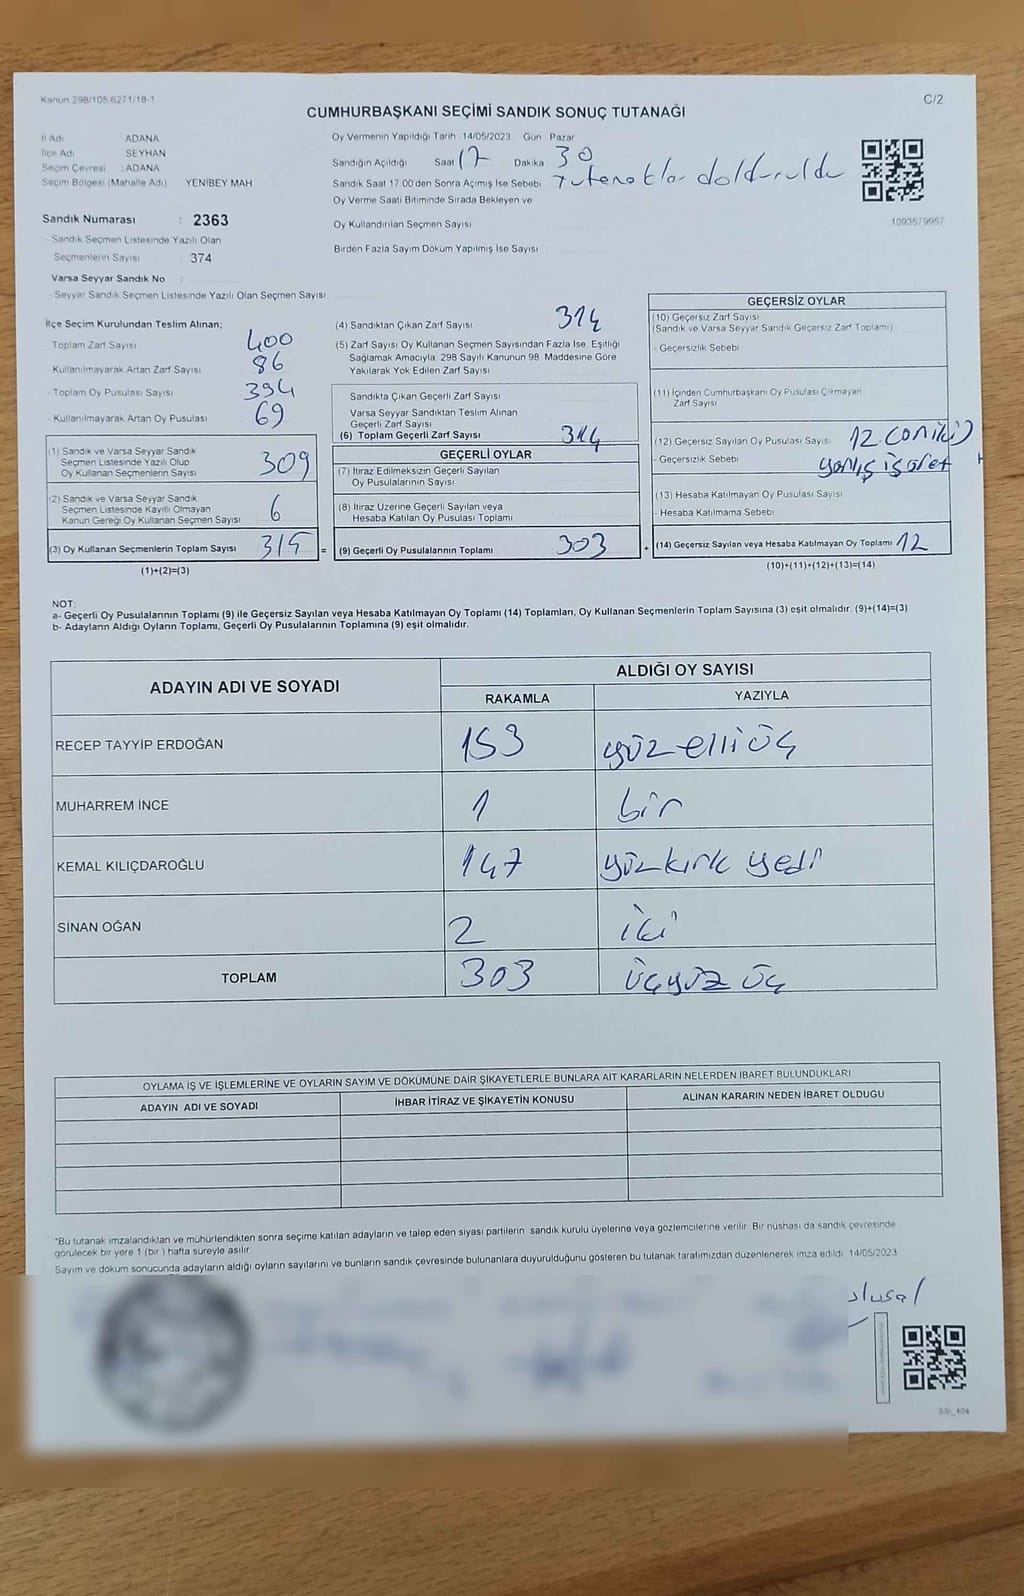 Kanun 298/105.6271/18-1
C/2
CUMHURBAŞKANI SEÇİMİ SANDIK SONUÇ TUTANAĞI
İl Adı : ADANA
İlçe Adı : SEYHAN
Seçim Çevresi : ADANA
Seçim Bölgesi (Mahalle Adı) YENİBEY MAH
Sandık Numarası : 2363
- Sandık Seçmen Listesinde Yazılı Olan
Seçmenlerin Sayısı : 374
Varsa Seyyar Sandık No :
- Seyyar Sandık Seçmen Listesinde Yazılı Olan Seçmen Sayısı
Oy Vermenin Yapıldığı Tarih 14/05/2023 Gün Pazar
Sandığın Açıldığı Saat 17 Dakika 30
Sandık Saat 17:00'den Sonra Açımış İse Sebebi Tutanaklar dolduruldu
Oy Verme Saati Bitiminde Sırada Bekleyen ve
Oy Kullandırılan Seçmen Sayısı
Birden Fazla Sayım Döküm Yapılmış İse Sayısı
1093579957
İlçe Seçim Kurulundan Teslim Alınan;
- Toplam Zarf Sayısı 400
- Kullanılmayarak Artan Zarf Sayısı 86
- Toplam Oy Pusulası Sayısı 394
- Kullanılmayarak Artan Oy Pusulası 69
(1) Sandık ve Varsa Seyyar Sandık
Seçmen Listesinde Yazılı Olup
Oy Kullanan Seçmenlerin Sayısı 309
(2) Sandık ve Varsa Seyyar Sandık
Seçmen Listesinde Kayıtlı Olmayan
Kanun Gereği Oy Kullanan Seçmen Sayısı 6
(3) Oy Kullanan Seçmenlerin Toplam Sayısı 315 =
(1)+(2)=(3)
(4) Sandıktan Çıkan Zarf Sayısı 314
(5) Zarf Sayısı Oy Kullanan Seçmen Sayısından Fazla İse, Eşitliği
Sağlamak Amacıyla, 298 Sayılı Kanunun 98. Maddesine Göre
Yakılarak Yok Edilen Zarf Sayısı
Sandıkta Çıkan Geçerli Zarf Sayısı
Varsa Seyyar Sandıktan Teslim Alınan
Geçerli Zarf Sayısı
(6) Toplam Geçerli Zarf Sayısı 314
GEÇERLİ OYLAR
(7) İtiraz Edilmeksizin Geçerli Sayılan
Oy Pusulalarının Sayısı
(8) İtiraz Üzerine Geçerli Sayılan veya
Hesaba Katılan Oy Pusulası Toplamı
(9) Geçerli Oy Pusulalarının Toplamı 303 +
GEÇERSİZ OYLAR
(10) Geçersiz Zarf Sayısı
(Sandık ve Varsa Seyyar Sandık Geçersiz Zarf Toplamı)
- Geçersizlik Sebebi
(11) İçinden Cumhurbaşkanı Oy Pusulası Çıkmayan
Zarf Sayısı
(12) Geçersiz Sayılan Oy Pusulası Sayısı 12 (oniki)
- Geçersizlik Sebebi yanlış işaret
(13) Hesaba Katılmayan Oy Pusulası Sayısı
- Hesaba Katılmama Sebebi
(14) Geçersiz Sayılan veya Hesaba Katılmayan Oy Toplamı 12
(10)+(11)+(12)+(13)=(14)
NOT:
a- Geçerli Oy Pusulalarının Toplamı (9) ile Geçersiz Sayılan veya Hesaba Katılmayan Oy Toplamı (14) Toplamları, Oy Kullanan Seçmenlerin Toplam Sayısına (3) eşit olmalıdır. (9)+(14)=(3)
b- Adayların Aldığı Oyların Toplamı, Geçerli Oy Pusulalarının Toplamına (9) eşit olmalıdır.
ADAYIN ADI VE SOYADI
ALDIĞI OY SAYISI
RAKAMLA YAZIYLA
RECEP TAYYİP ERDOĞAN 153 yüz elli üç
MUHARREM İNCE 1 bir
KEMAL KILIÇDAROĞLU 147 yüzkırk yedi
SİNAN OĞAN 2 iki
TOPLAM 303 üçyüz üç
OYLAMA İŞ VE İŞLEMLERİNE VE OYLARIN SAYIM VE DÖKÜMÜNE DAİR ŞİKAYETLERLE BUNLARA AİT KARARLARIN NELERDEN İBARET BULUNDUKLARI
ADAYIN ADI VE SOYADI İHBAR İTİRAZ VE ŞİKAYETİN KONUSU ALINAN KARARIN NEDEN İBARET OLDUĞU
*Bu tutanak imzalandıktan ve mühürlendikten sonra seçime katılan adayların ve talep eden siyasi partilerin sandık kurulu üyelerine veya gözlemcilerine verilir. Bir nüshası da sandık çevresinde
görülecek bir yere 1 (bir) hafta süreyle asılır.
Sayım ve döküm sonucunda adayların aldığı oyların sayılarını ve bunların sandık çevresinde bulunanlara duyurulduğunu gösteren bu tutanak tarafımızdan düzenlenerek imza edildi. 14/05/2023
ulusal